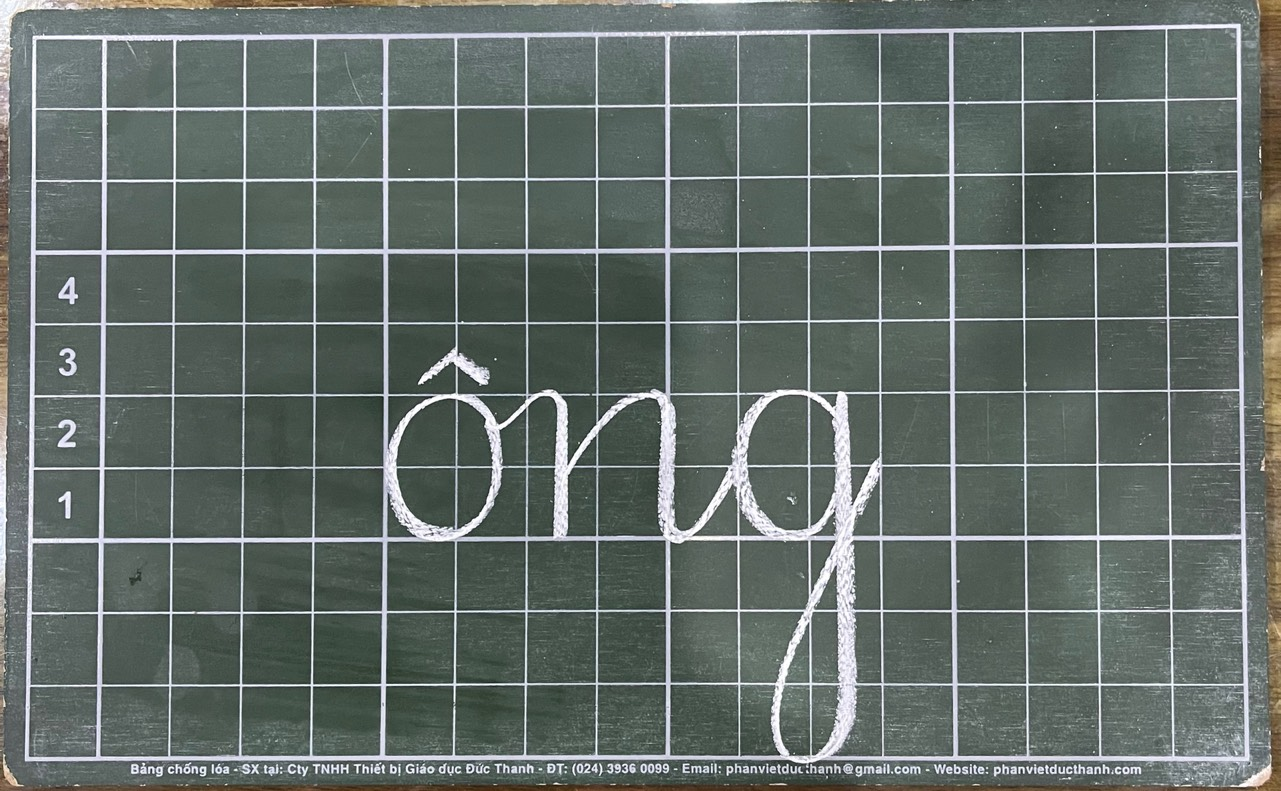 4
3
2
1
ông
Bảng chống lóa - SX tại: Cty TNHH Thiết bị Giáo dục Đức Thanh - ĐT: (024) 3936 0099 - Email: phanvietducthanh@gmail.com - Website: phanvietducthanh.com